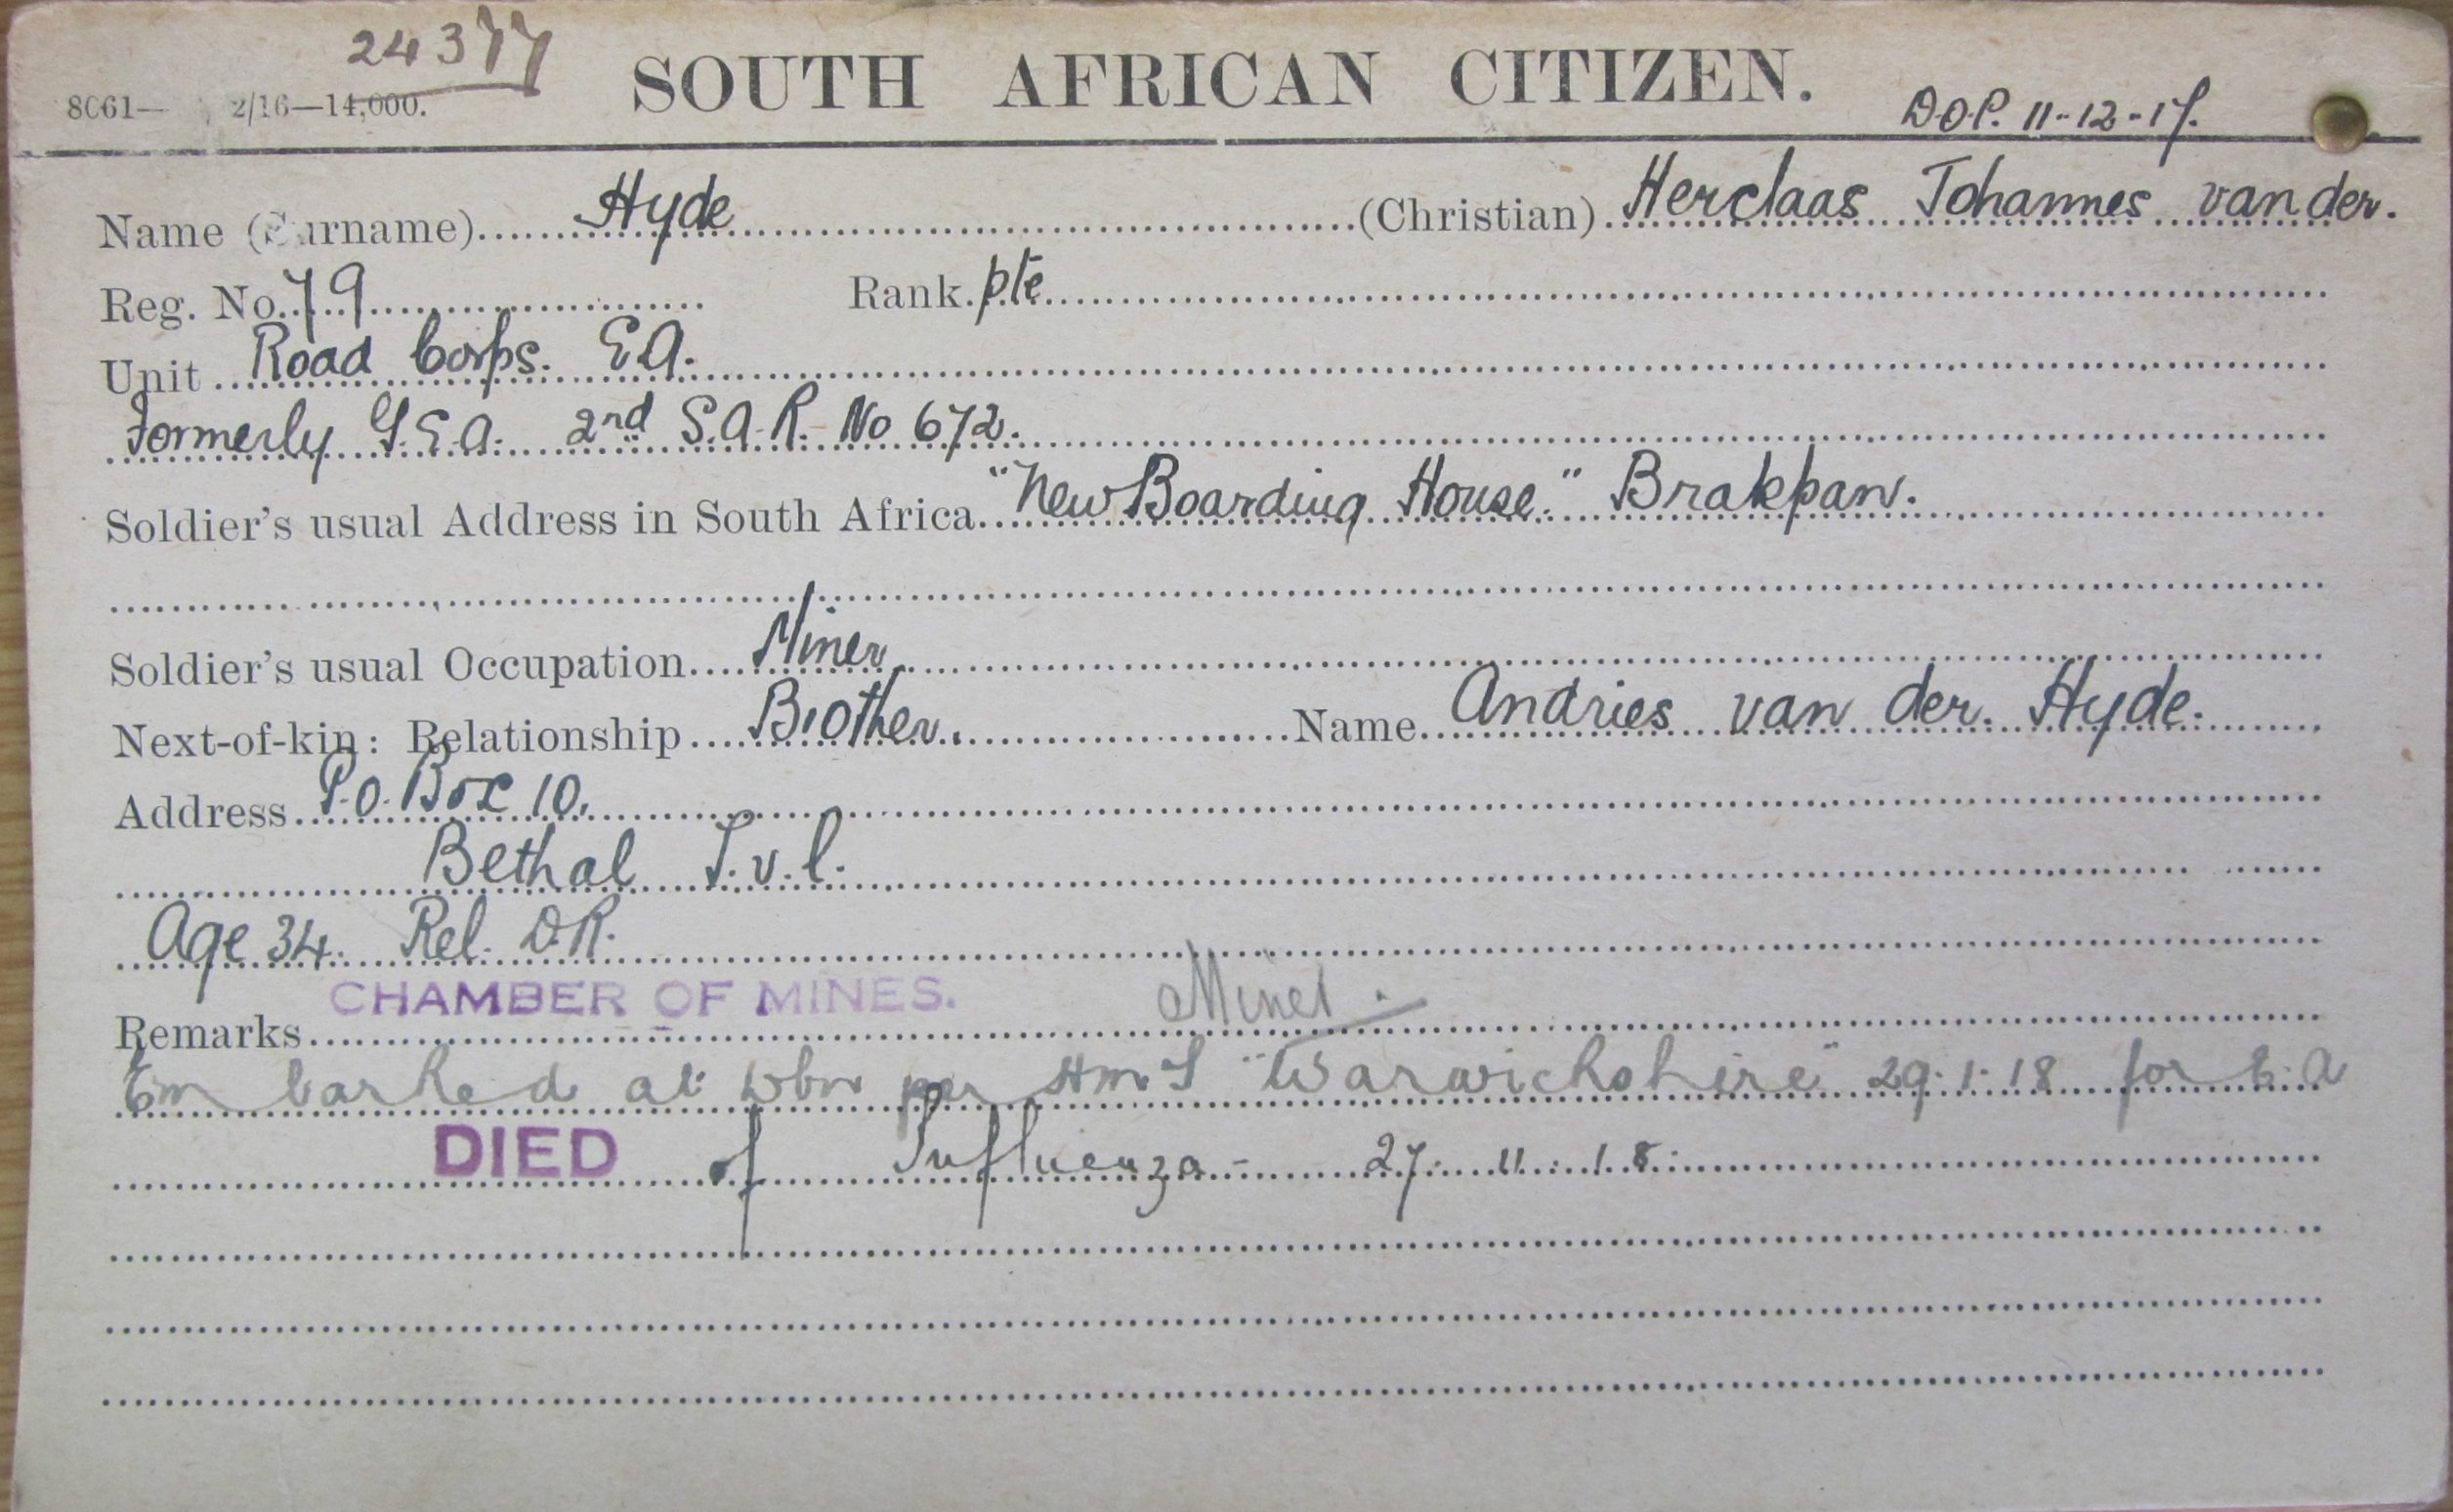 24377
8061— 2/16—14,000.
SOUTH AFRICAN CITIZEN.
D.O.P. 11-12-17.
Name (Surname) Hyde (Christian) Herclaas Johannes van der.
Reg. No. 79 Rank. pte
Unit Road Corps. E.A.
Formerly G.E.A. 2nd S.A.R. No 672.
Soldier's usual Address in South Africa "New Boarding House." Brakpan.
Soldier's usual Occupation Miner
Next-of-kin: Relationship Brother. Name Andries van der. Hyde.
Address P.O. Box 10.
Bethal T.v.l.
Age 34. Rel. D.R.
CHAMBER OF MINES. Miner.
Remarks
Embarked at Dbn per HmS "Warwickshire" 29.1.18 for E.A
DIED of Influenza - 27.11.18.